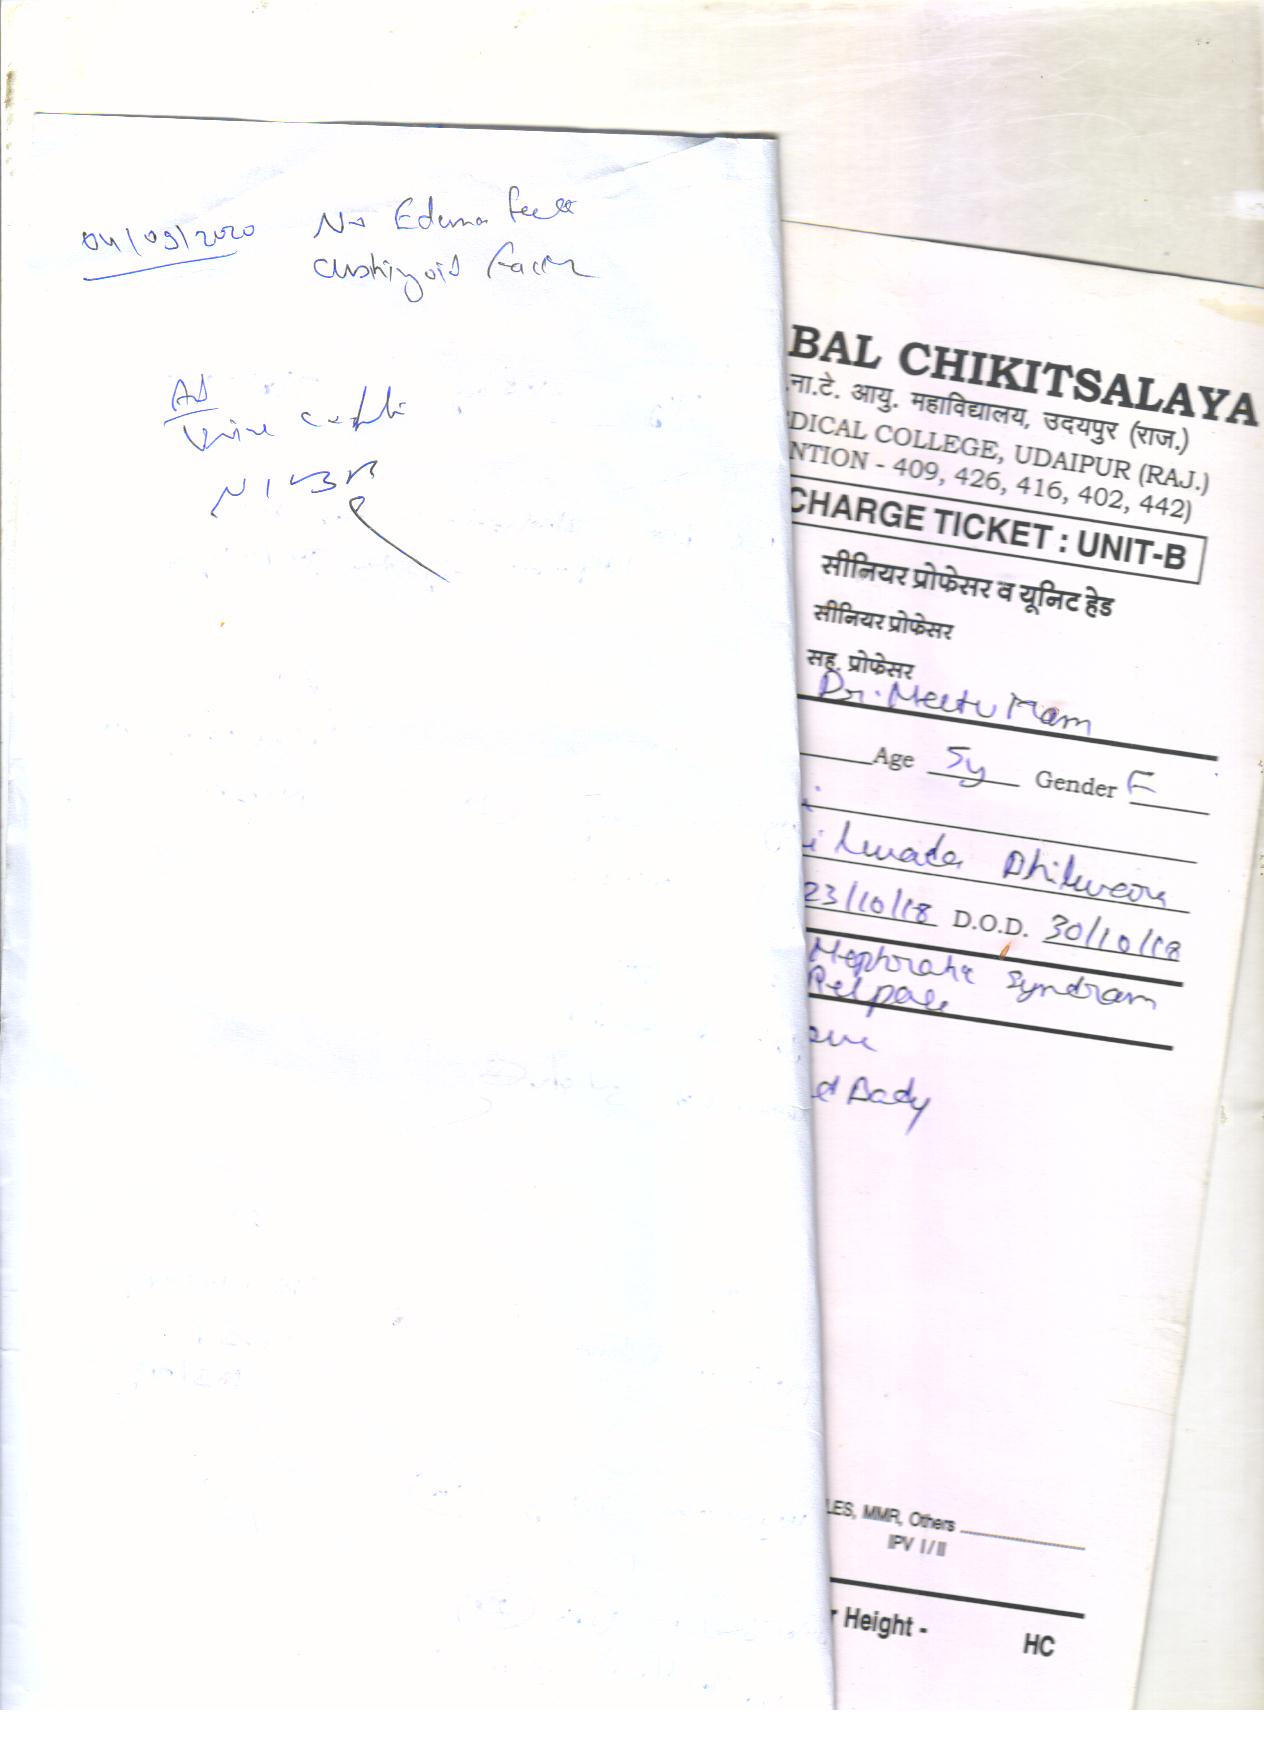 04/09/2020 No Edema feet
Cushigoid Facies
Ad
Urine
BAL CHIKITSALAYA
ना.टे. आयु. महाविद्यालय, उदयपुर (राज.)
DICAL COLLEGE, UDAIPUR (RAJ.)
NTION - 409, 426, 416, 402, 442)
CHARGE TICKET : UNIT-B
सीनियर प्रोफेसर व यूनिट हेड
सीनियर प्रोफेसर
सह. प्रोफेसर
Dr. Meetu Mam
Age 5y Gender F
23/10/18 D.O.D. 30/10/18
Nephrotic Syndrom
Relpase
d Bady
LES, MMR, Others
IPV I / II
r Height - HC